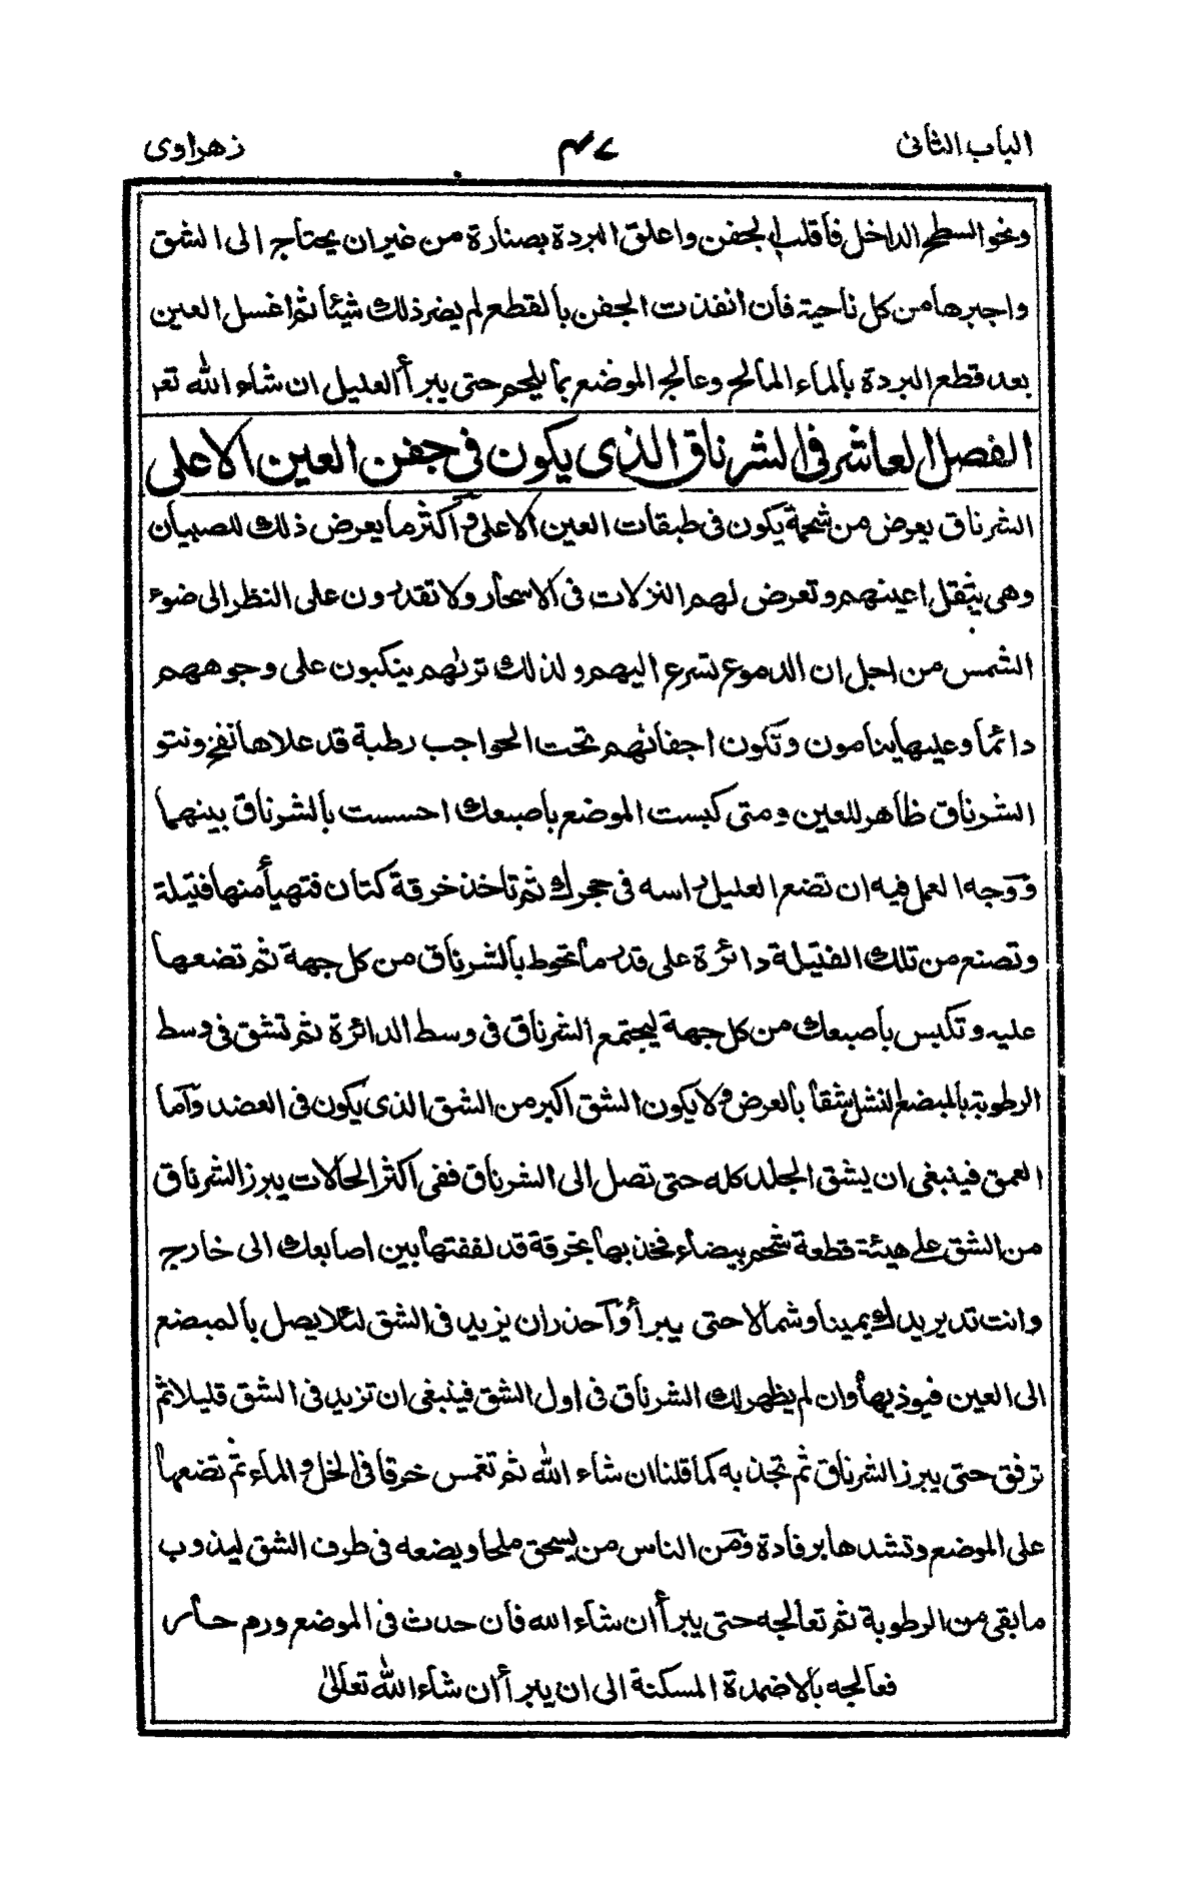 الباب الثانى ٤٧ زهراوى
ونحو السطح الداخل فاقلب الجفن واعلق البردة بصنارة من غير ان يحتاج الى الشق
واجبرها من كل ناحية فان انفذت الجفن بالقطع لم يضر ذلك شيئا ثم اغسل العين
بعد قطع البردة بالماء المالح وعالج الموضع بما يلحم حتى يبرأ العليل ان شاء الله تعر
الفصل العاشر فى الشرناق الذى يكون فى جفن العين الاعلى
الشرناق يعرض من شحمة يكون فى طبقات العين الاعلى و اكثر ما يعرض ذلك للصبيان
وهى يثقل اعينهم وتعرض لهم النزلات فى الاسحار ولا تقدرون على النظر الى ضوء
الشمس من اجل ان الدموع تسرع اليهم ولذلك ترٰىهم ينكبون على وجوههم
دائما وعليها ينامون وتكون اجفانهم تحت الحواجب رطبة قد علاها نفخ ونتو
الشرناق ظاهر للعين ومتى كبست الموضع باصبعك احسست بالشرناق بينهما
ووجه العمل فيه ان تضع العليل راسه فى حجرك ثم تاخذ خرقة كتان فتهيأ منها فتيلة
وتصنع من تلك الفتيلة دائرة على قدر ما تحوط بالشرناق من كل جهة ثم تضعها
عليه وتكبس باصبعك من كل جهة ليجتمع الشرناق فى وسط الدائرة ثم تشق فى وسط
الرطوبة بالمبضع النشل شقا بالعرض ولا يكون الشق اكبر من الشق الذى يكون فى العضد واما
العمق فينبغى ان يشق الجلد كله حتى تصل الى الشرناق ففى اكثر الحالات يبرز الشرناق
من الشق على هيئة قطعة شحم بيضاء فخذ بها بخرقة قد لففتها بين اصابعك الى خارج
وانت تدير يدك يمينا وشمالا حتى يبرأ وآحذر ان يزيد فى الشق لئلا يصل بالمبضع
الى العين فيوذيها وان لم يظهر لك الشرناق فى اول الشق فينبغى ان تزيد فى الشق قليلا ثم
ترفق حتى يبرز الشرناق ثم تجذبه كما قلنا ان شاء الله ثم تغمس خرقا فى الخل و الماء ثم تضعها
على الموضع وتشدها برفادة ومن الناس من يسحق ملحا ويضعه فى طرف الشق ليذوب
ما بقى من الرطوبة ثم تعالجه حتى يبرأ ان شاء الله فان حدث فى الموضع ورم حار
فعالجه بالاضمدة المسكنة الى ان يبرأ ان شاء الله تعالىٰ